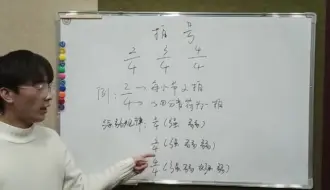 拍 号
2/4 3/4 4/4
例: 2/4 → 每个小节2拍
→ 以四分音符为一拍
强弱规律: 2/4 (强 弱)
3/4 (强 弱 弱)
4/4 (强 弱 次强 弱)